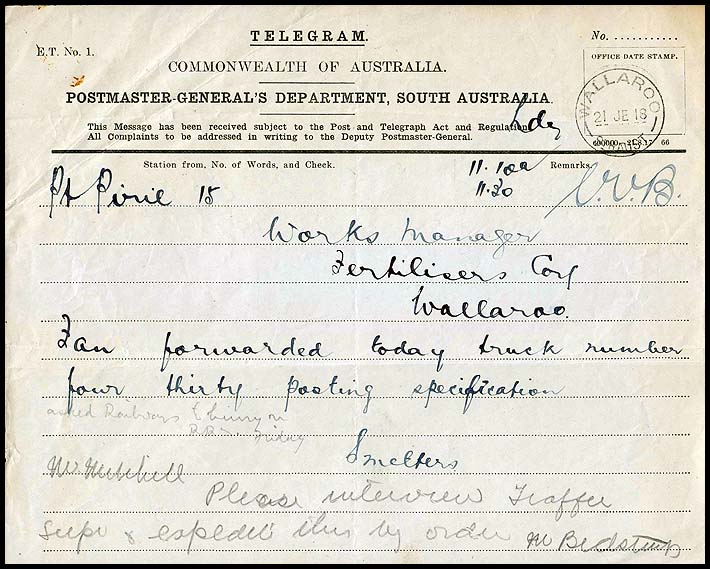 TELEGRAM.
No. ...........
E.T. No. 1.
COMMONWEALTH OF AUSTRALIA.
OFFICE DATE STAMP.
POSTMASTER-GENERAL'S DEPARTMENT, SOUTH AUSTRALIA.
WALLAROO
21 JE 18
This Message has been received subject to the Post and Telegraph Act and Regulations.
All Complaints to be addressed in writing to the Deputy Postmaster-General.
600000.—21.8.17 66
Station from, No. of Words, and Check.
11.10a
Remarks.
Pt Pirie 15
11.30
Works Manager
Fertilisers Coy
Wallaroo.
Fan forwarded today truck number
four thirty posting specification
asked Railways to hurry on
Friday
Smelters
Mr Mitchell
Please interview Traffic
Supt & expedite this by order